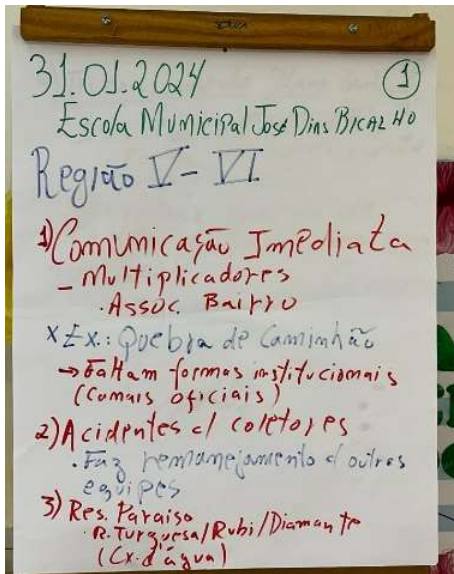 31.01.2024 1
Escola Municipal José Dias BICALHO
Região V - VI
1) Comunicação Imediata
- Multiplicadores
. Assoc. Bairro
x Ex.: Quebra de Caminhão
→ Faltam formas institucionais
(Canais oficiais)
2) Acidentes c/ coletores
. Faz remanejamento c/ outras
equipes
3) Res. Paraiso
. R. Turquesa/Rubi/Diamante
(Cx. d'água)